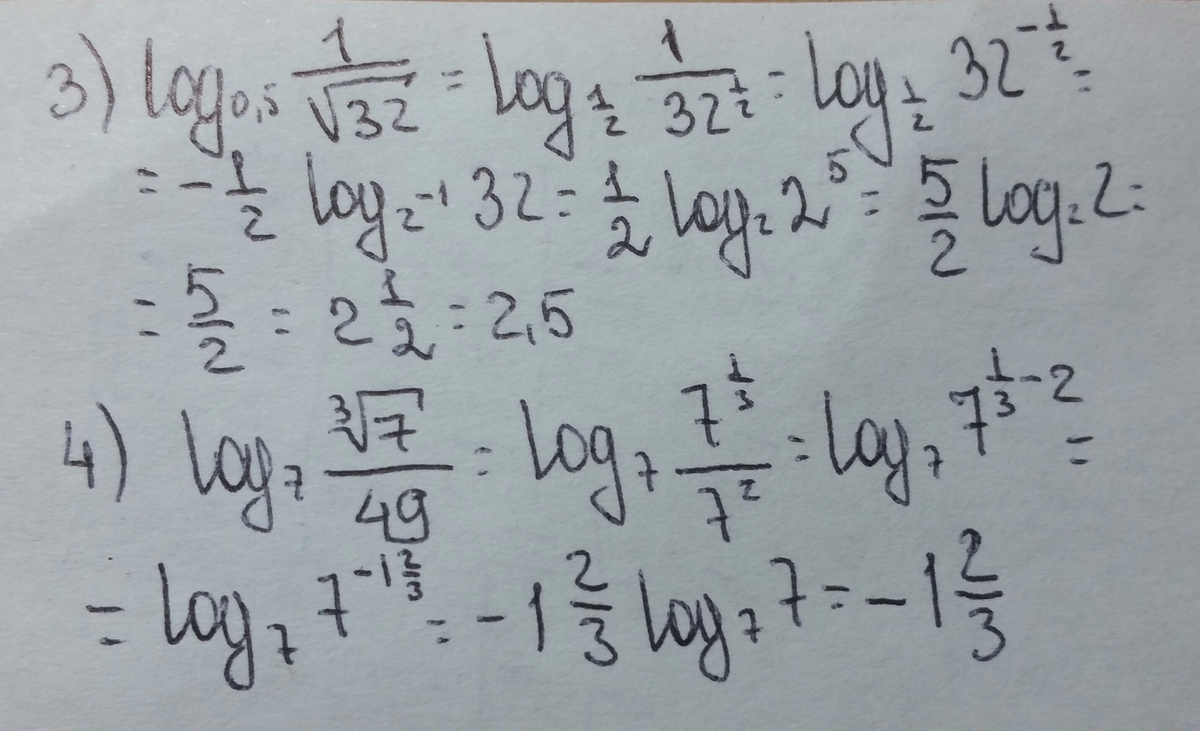 3) log₀,₅ 1/√32 = log_{1/2} 1/32^{1/2} = log_{1/2} 32^{-1/2} =
= -1/2 log_{2^{-1}} 32 = 1/2 log₂ 2⁵ = 5/2 log₂ 2 =
= 5/2 = 2 1/2 = 2,5
4) log₇ ∛7/49 = log₇ 7^{1/3}/7² = log₇ 7^{1/3-2} =
= log₇ 7^{-1 2/3} = -1 2/3 log₇ 7 = -1 2/3